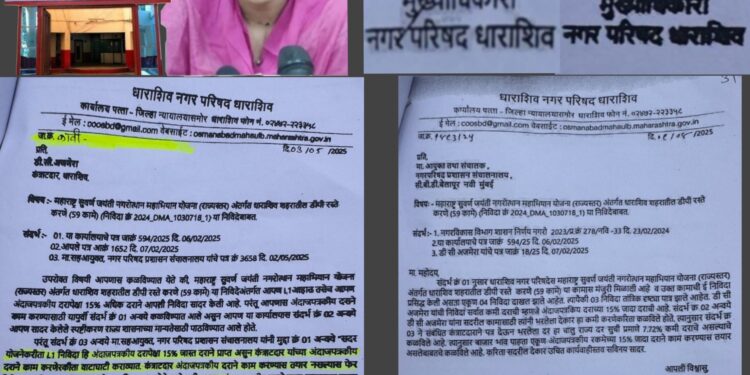 मुख्याधिकारी
नगर परिषद धाराशिव
मुख्याधिकारी
नगर परिषद धाराशिव
धाराशिव नगर परिषद धाराशिव
कार्यालय पत्ता – जिल्हा न्यायालयासमोर धाराशिव फोन नं. ०२४७२-२२३५४८
ई मेल : coosbd@gmail.com वेबसाईट : osmanabadmahaulb.maharashtra.gov.in
जा.क्र.
दि.03/05/2025
प्रति,
डी.सी.अजमेरा
कंत्राटदार, धाराशिव.
विषय :- महाराष्ट्र सुवर्ण जयंती नगरोत्थान महाभियान योजना (राज्यस्तर) अंतर्गत धाराशिव शहरातील डीपी रस्ते
करणे (59 कामे) (निविदा क्रं 2024_DMA_1030718_1) या निविदेबाबत.
संदर्भ :- 01. या कार्यालयाचे पत्र जाक्रं 594/2025 दि. 06/02/2025
02.आपले पत्र आक्रं 1652 दि. 07/02/2025
03. मा.सहआयुक्त, नगर परिषद प्रशासन संचालनालय यांचे पत्र क्रं 3658 दि. 02/05/2025
उपरोक्त विषयी आपणास कळविण्यात येते की, महाराष्ट्र सुवर्ण जयंती नगरोत्थान महाभियान योजना
(राज्यस्तर) अंतर्गत धाराशिव शहरातील डीपी रस्ते करणे (59 कामे) या निविदेअंतर्गत आपण L1
अंदाजपत्रकीय दरापेक्षा 15% अधिक दराने आपली निविदा सादर केली आहे. परंतु आपणास अंदाजपत्रकीय दराने
काम करण्यासाठी यापुर्वी संदर्भ क्रं 01 अन्वये कळविण्यात आले असुन आपण या कार्यालयास संदर्भ क्रं 02 अन्वये
आपण सादर केलेले स्पष्टीकरण राज्य शासनाच्या मान्यतेसाठी पाठविण्यात आले होते.
परंतु संदर्भ क्रं 03 अन्वये मा.सहआयुक्त, नगर परिषद प्रशासन संचालनालय यांनी मुद्दा क्रं 01 अन्वये "सदर
योजनेकरीता L1 निविदा हि अंदाजपत्रकीय दरापेक्षा 15% जास्त दराने प्राप्त असुन कंत्राटदार यांच्या अंदाजपत्रकीय
दराने काम करणेरकीता वाटाघाटी कराव्यात. कंत्राटदार अंदाजपत्रकीय दराने काम करण्यास तयार नसल्यास फेर
धाराशिव नगर परिषद धाराशिव
कार्यालय पत्ता – जिल्हा न्यायालयासमोर धाराशिव फोन नं. ०२४७२-२२३५४८
ई मेल : coosbd@gmail.com वेबसाईट : osmanabadmahaulb.maharashtra.gov.in
/2025
प्रति,
मा. आयुक्त तथा संचालक,
नगरपरिषद प्रशासन संचालनालय,
सी.बी.डी.बेलापूर नवी मुंबई
विषय :- महाराष्ट्र सुवर्ण जयंती नगरोत्थान महाभियान योजना (राज्यस्तर) अंतर्गत धाराशिव शहरातील डीपी रस्ते
करणे (59 कामे) (निविदा क्रं 2024_DMA_1030718_1) या निविदेबाबत.
संदर्भ :- 1. नगरविकास विभाग शासन निर्णय नगरो 2023/प्र.क्रं 276/नवि -33 दि. 23/02/2024
2.या कार्यालयाचे पत्र 594/25 दि. 06/02/2025
3. डी सी अजमेरा यांचे पत्र जाक्रं 18/25 दि. 07/02/2025
मा. महोदय,
संदर्भ क्रं 01 नुसार धाराशिव नगरपरिषदेस महाराष्ट्र सुवर्ण जयंती नगरोत्थान महाभियान योजना (राज्यस्तर)
अंतर्गत धाराशिव शहरातील डीपी रस्ते करणे (59 कामे) या कामास मंजुरी मिळाली आहे व उक्त कामाची ई निविदा
प्रसिद्ध केली असता एकुण 04 निविदा दाखल झाले आहेत. त्यापैकी 03 निविदा तांत्रिक दृष्ट्या पात्र झाले आहेत. डी सी
अजमेरा यांची निविदा सर्वात कमी दराची म्हणजे अंदाजपत्रकीय दराच्या 15% जादा दराची आहे. संदर्भ क्रं. 02 अन्वये
डी सी अजमेरा यांना सदरील कामासाठी त्यांनी भरलेला देकार हा कमी करणेकरिता कळविले आहे. त्यानुसार संदर्भ क्रं
03 ने संबंधित कंत्राटदाराने पत्र देऊन भरलेला दर हा चालु राज्य दर सुची प्रमाणे 7.72% कमी दराचे असल्याचे
कळविले आहे. त्यानुसार बाजार भाव पाहता एकुण अंदाजपत्रकीय रकमेच्या 15% जादा दराने काम करण्यास तयार
असलेबाबतचे कळविले आहे. करिता सदरील देकार उचित कार्यवाहीस्तव सविनय सादर.
आपली विश्वासु,